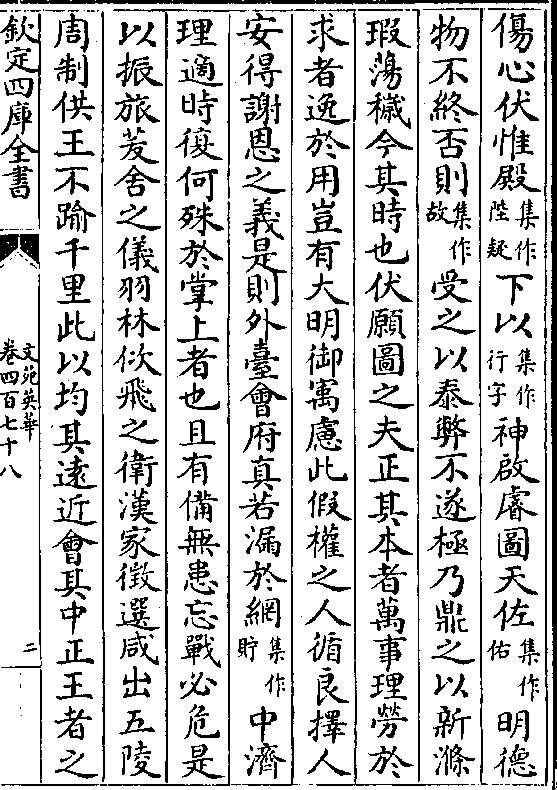 傷心伏惟殿集作陛疑下以集作行字神啟睿圖天佐集作佑明德
物不終否則集作故受之以泰弊不遂極乃鼎之以新滌
瑕蕩穢今其時也伏願圖之夫正其本者萬事理勞於
求者逸於用豈有大明御寓慮此假權之人循良擇人
安得謝恩之義是則外臺會府真若漏於網集作貯中濟
理適時復何殊於掌上者也且有備無患忘戰必危是
以振旅茇舍之儀羽林佽飛之衛漢家徵選咸出五陵
周制供王不踰千里此以均其遠近會其中正王者之
欽定四庫全書
文苑英華
卷四百七十八
二